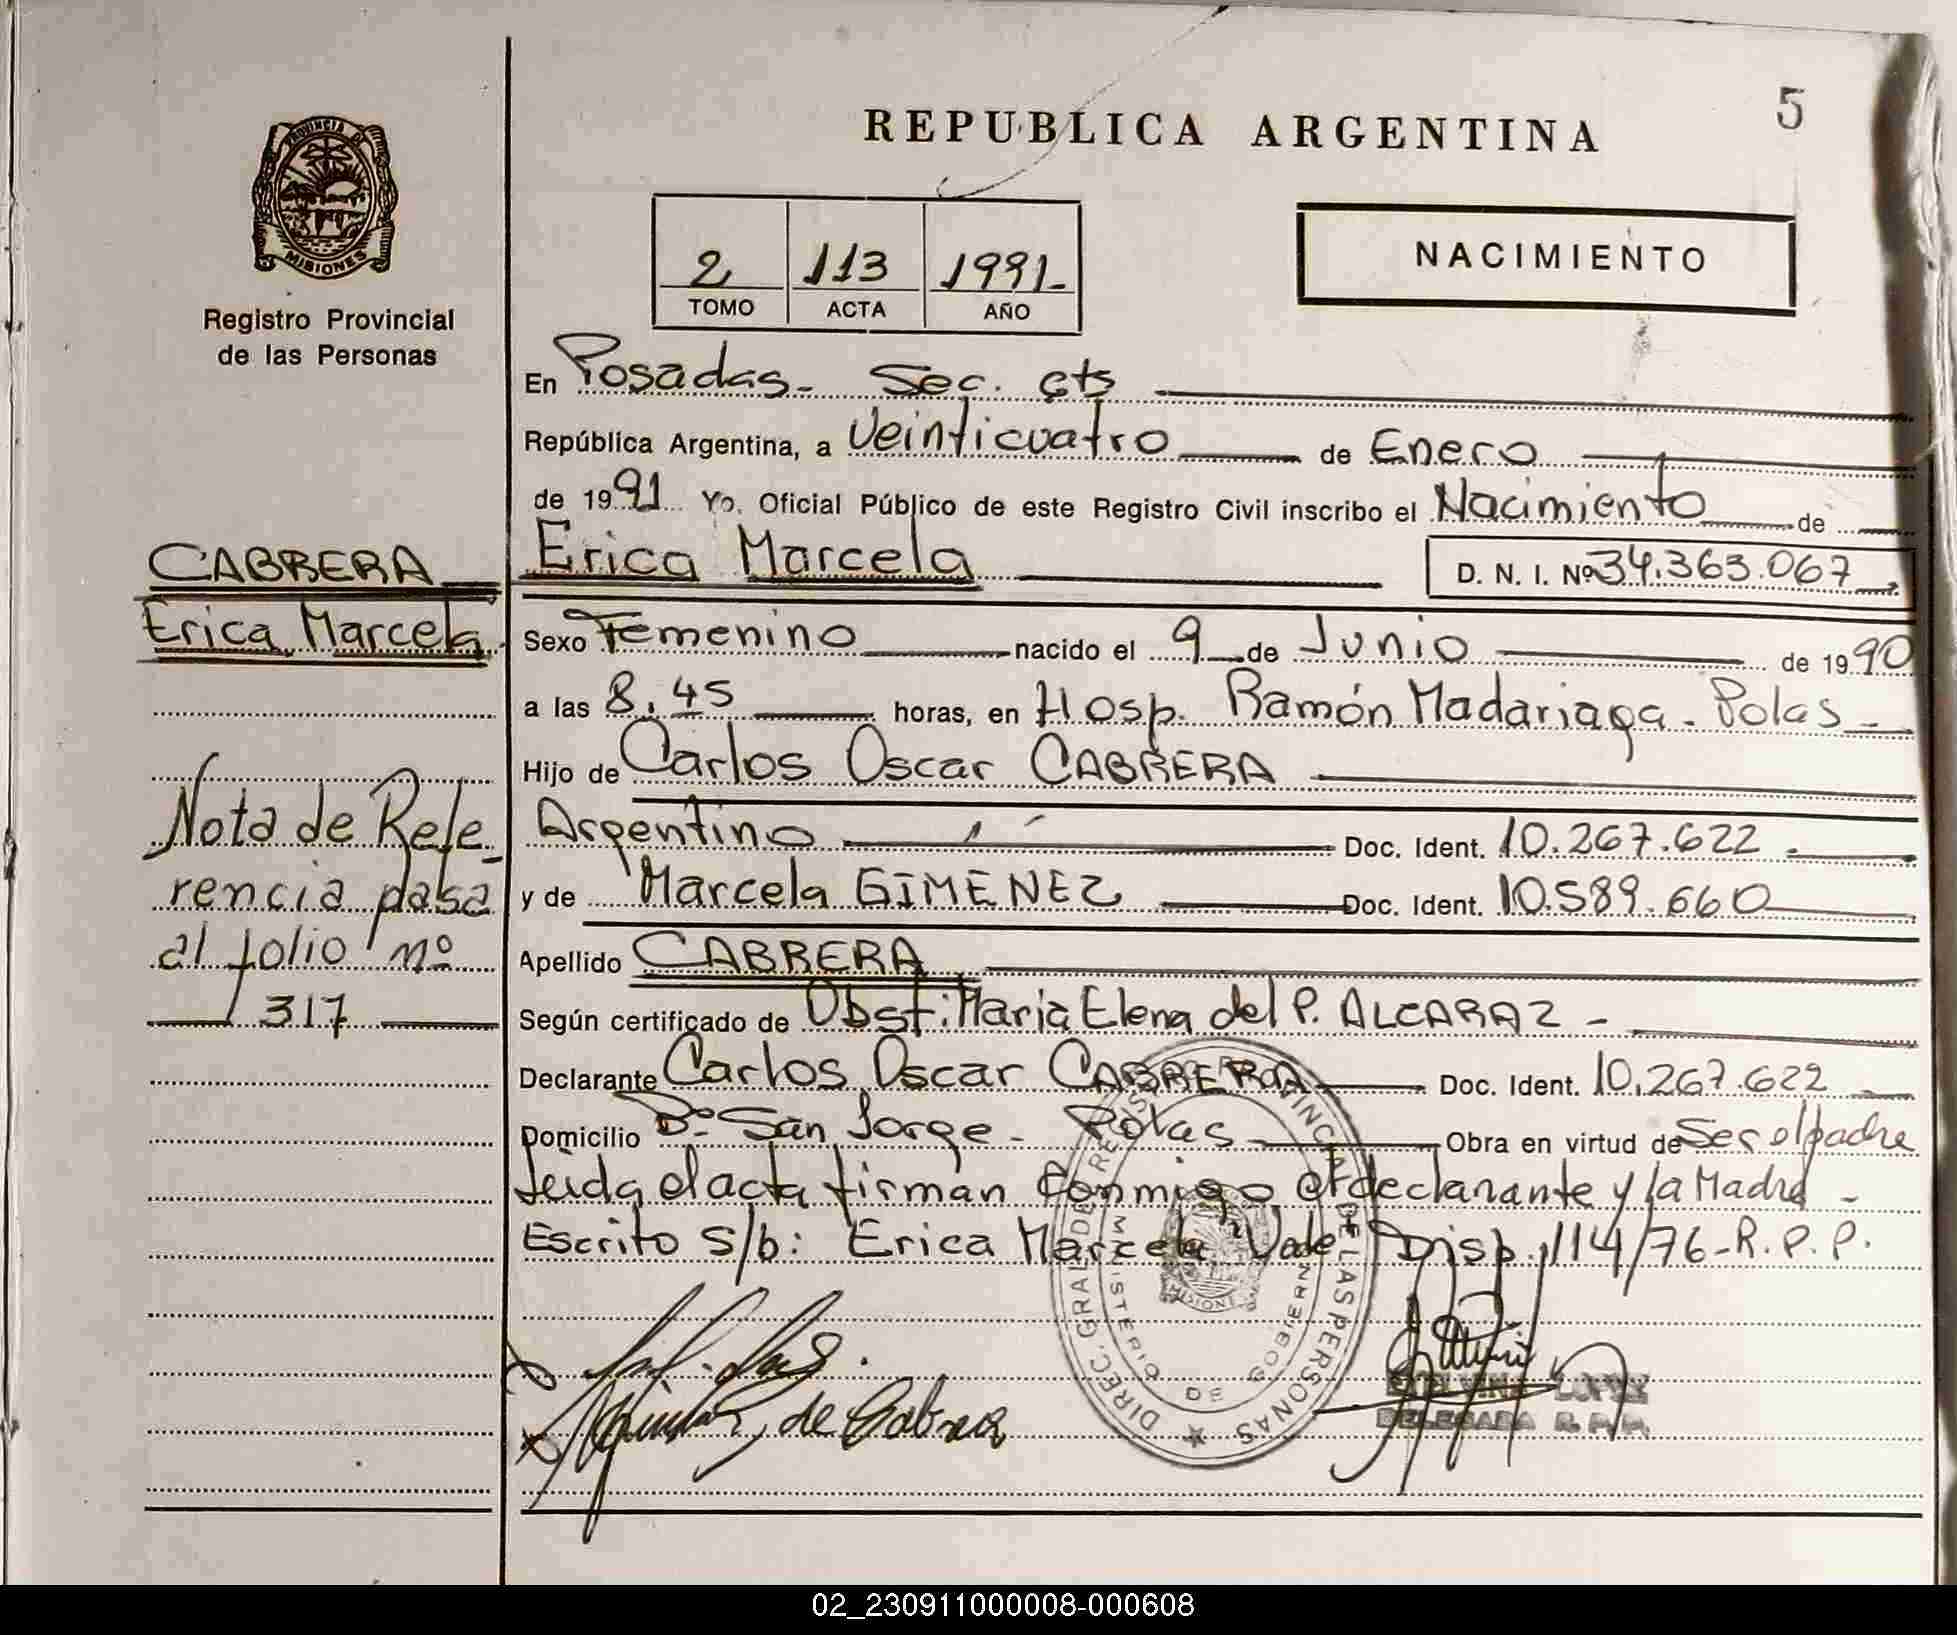 5
REPUBLICA ARGENTINA
PROVINCIA DE
MISIONES
Registro Provincial
de las Personas
2 113 1991-
TOMO ACTA AÑO
NACIMIENTO
En Posadas- Sec. cts
República Argentina, a Veinticuatro de Enero
de 1991 Yo. Oficial Público de este Registro Civil inscribo el Nacimiento de
CABRERA
Erica Marcela
Erica Marcela D. N. I. Nº 34.363.067
Sexo Femenino nacido el 9 de Junio de 1990
a las 8.45 horas, en Hosp. Ramón Madariaga - Pdas -
Hijo de Carlos Oscar CABRERA
Argentino Doc. Ident. 10.267.622
y de Marcela GIMENEZ Doc. Ident. 10.589.660
Apellido CABRERA
Según certificado de Obst: Maria Elena del P. ALCARAZ -
Declarante Carlos Oscar CABRERA Doc. Ident. 10.267.622
Domicilio Bº San Jorge - Pdas Obra en virtud de Ser el padre
Leida el acta firman conmigo el declarante y la Madre -
Escrito s/b: Erica Marcela "Vale" Disp. 114/76-R.P.P.
Nota de Refe_
rencia pasa
al folio nº
317
DIREC. GRAL. DE REGISTRO PROVINCIAL DE LAS PERSONAS
MINISTERIO DE GOBIERNO
MISIONES
de Cabrera
LOPEZ
DELEGADA R. P. P.
02_230911000008-000608